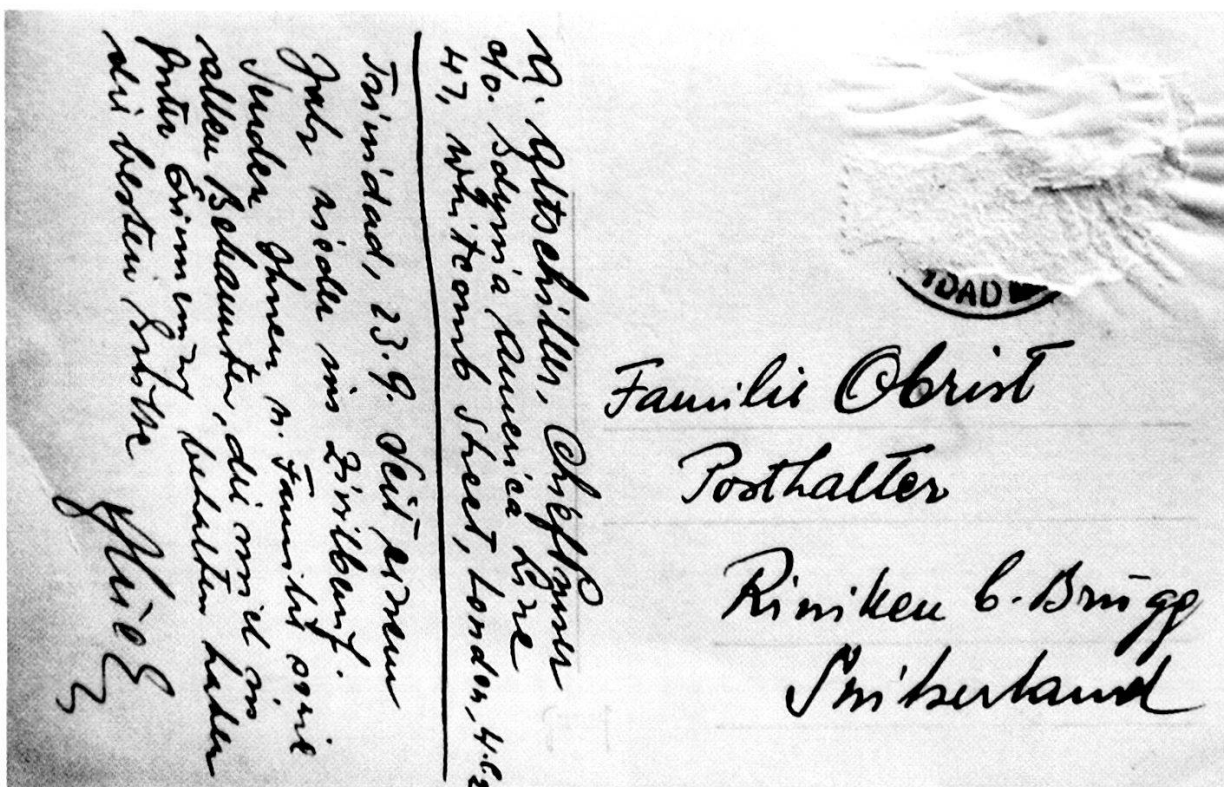 A. Altschiller, Chief Tanner
c/o. Gdynia America Line
47, Whitcomb Street, London,
Trinidad, 23.9. Seit einem
Jahr wieder im Zivilberuf.
Sende Ihnen u. Familie sowie
allen Bekannten, die mich in
guter Erinnerung behalten haben
die besten Grüsse
IDAD
Familie Obrist
Posthalter
Riniken b. Brugg
Switserland